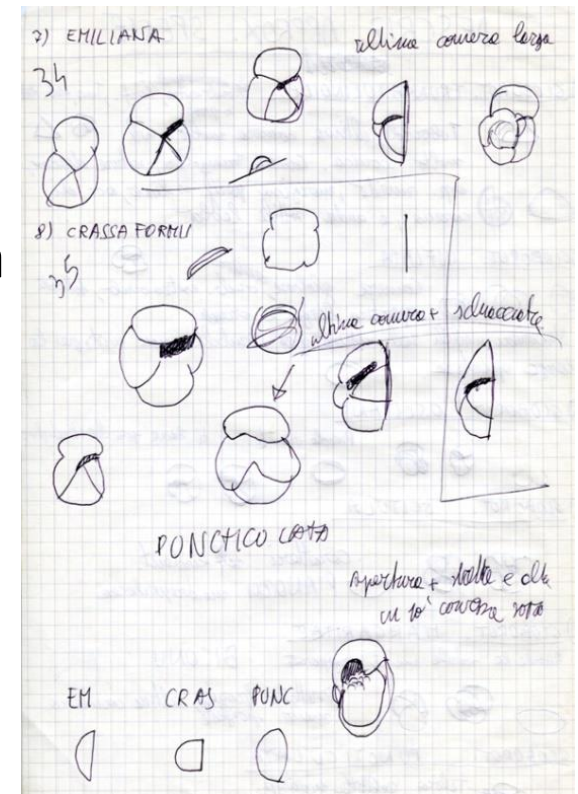 7) EMILIANA
ultima camera larga
34
8) CRASSA FORMIS
35
ultima camera + schiacciata
PONCTICO LATA
Apertura + stretta e alta
un po' convessa sotto
EM CRAS PONC